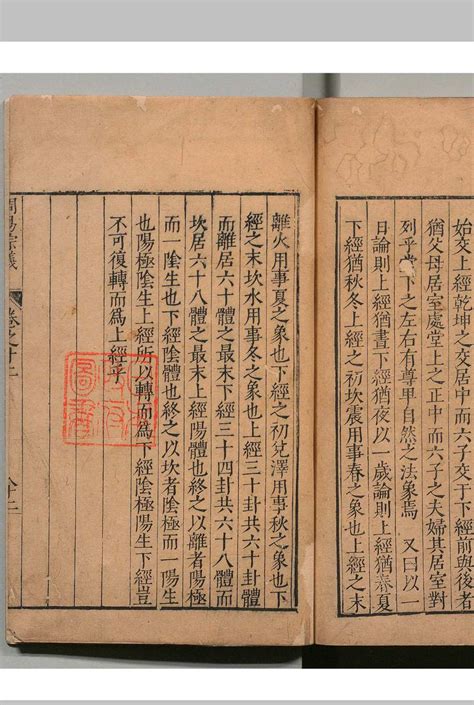 始交上經乾坤之交居中而六子交于下經前與後者
猶父母居室處堂上之正中而六子之夫婦其居室對
列乎堂下之左右有尊卑自然之法象焉 又曰以一
日論則上經猶晝下經猶夜以一歲論則上經猶春夏
下經猶秋冬上經之初坎震用事春之象也上經之末
離火用事夏之象也下經之初兌澤用事秋之象也下
經之末坎水用事冬之象也上經三十卦共六十卦體
而離居六十體之最末下經三十四卦共六十八體而
坎居六十八體之最末上經陽體也終之以離者陽極
而一陰生也下經陰體也終之以坎者陰極而一陽生
也陽極陰生上經所以轉而為下經陰極陽生下經豈
不可復轉而為上經乎
周易宗義
卷之十二
圖書